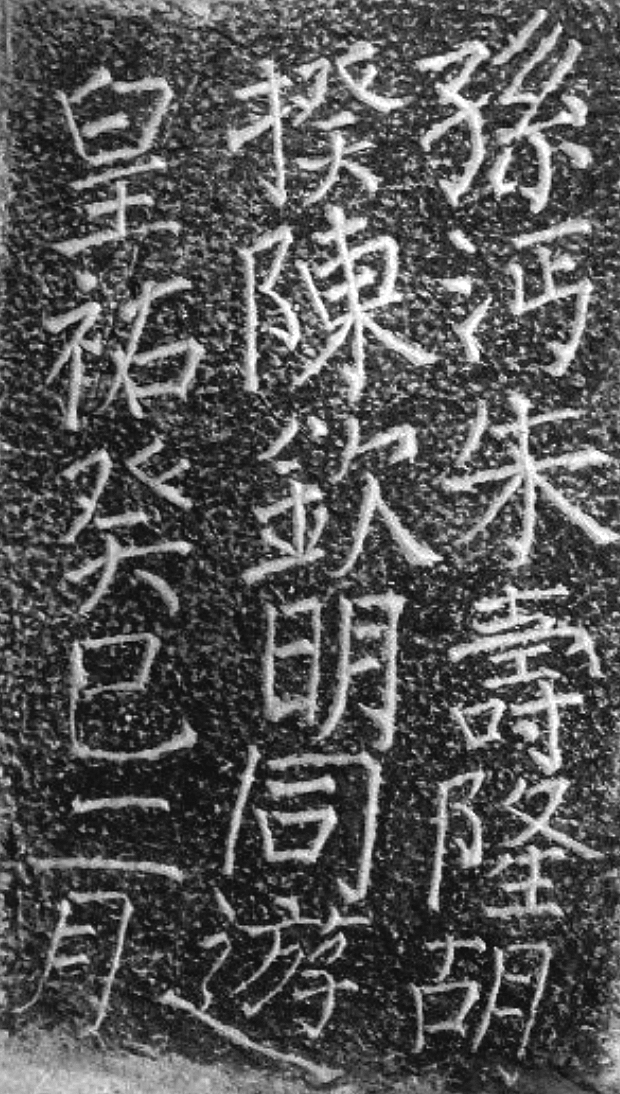 孫沔朱壽隆胡
揆陳欽明同遊
皇祐癸巳二月